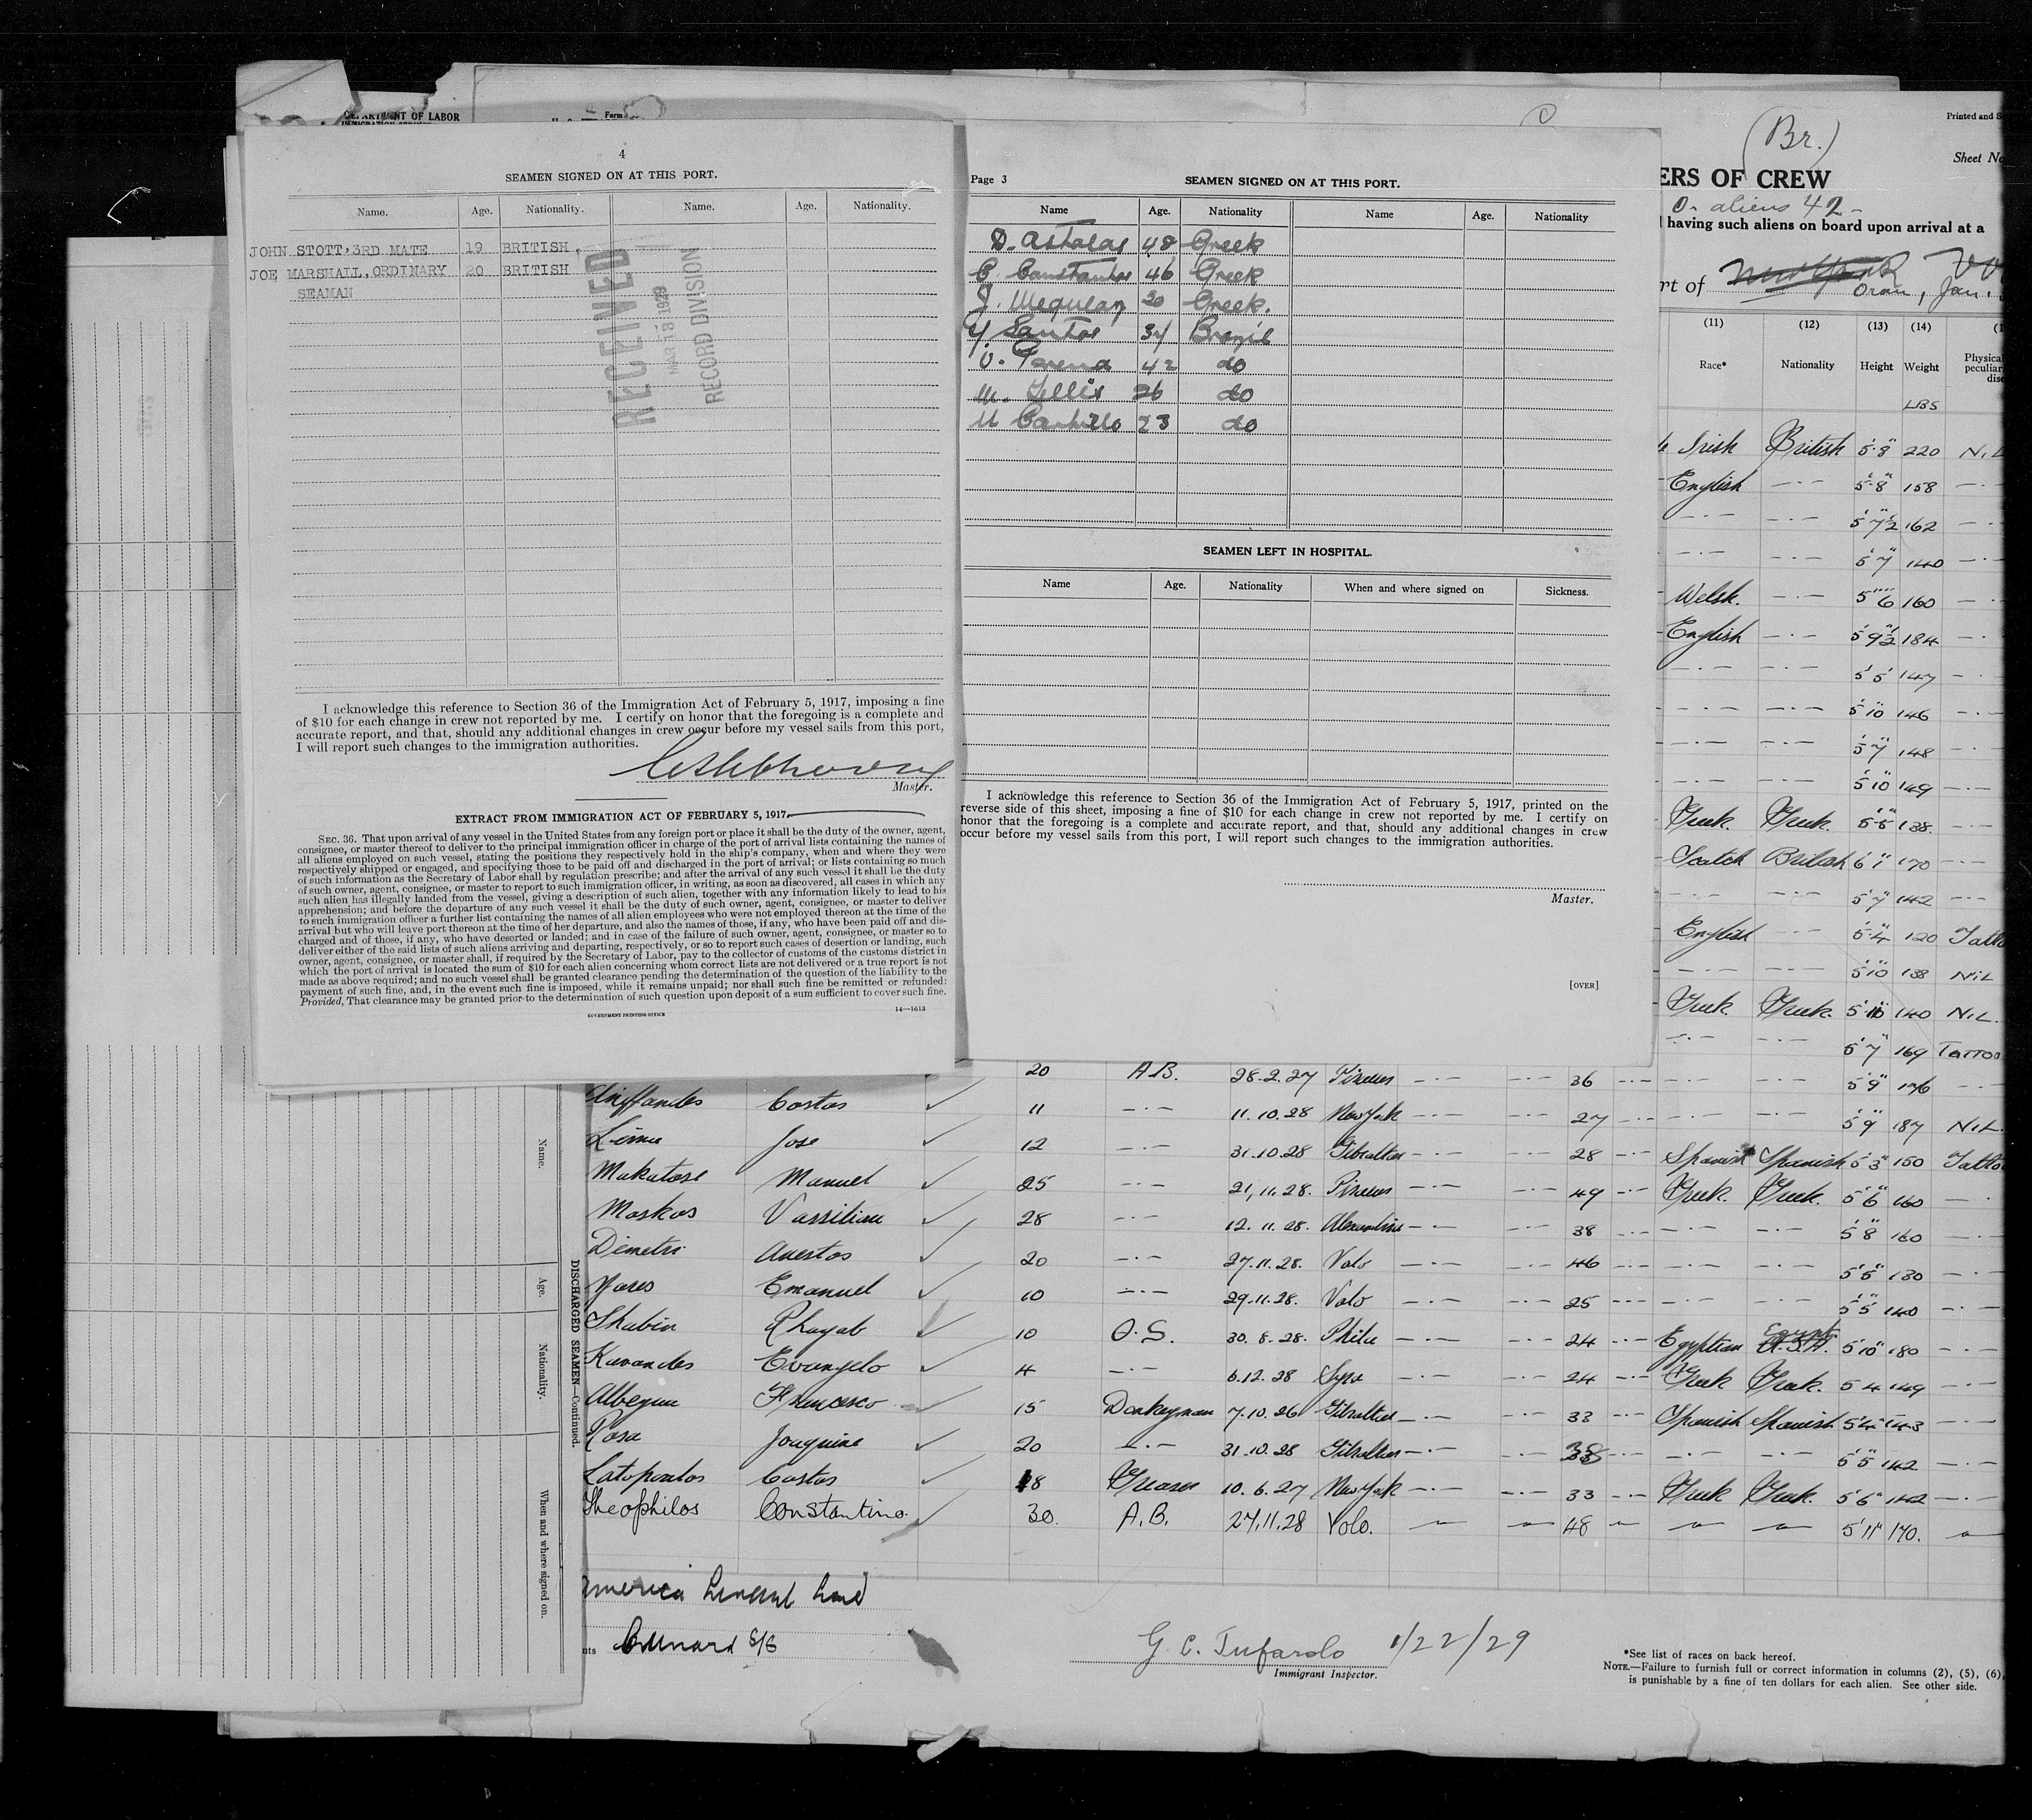 DEPARTMENT OF LABOR
Form
4
SEAMEN SIGNED ON AT THIS PORT.
Name. Age. Nationality. Name. Age. Nationality.
JOHN STOTT,3RD MATE 19 BRITISH
JOE MARSHALL,ORDINARY 20 BRITISH
SEAMAN
RECEIVED
MAR 18 1929
RECORD DIVISION
I acknowledge this reference to Section 36 of the Immigration Act of February 5, 1917, imposing a fine
of $10 for each change in crew not reported by me. I certify on honor that the foregoing is a complete and
accurate report, and that, should any additional changes in crew occur before my vessel sails from this port,
I will report such changes to the immigration authorities.
Master.
EXTRACT FROM IMMIGRATION ACT OF FEBRUARY 5, 1917.
SEC. 36. That upon arrival of any vessel in the United States from any foreign port or place it shall be the duty of the owner, agent,
consignee, or master thereof to deliver to the principal immigration officer in charge of the port of arrival lists containing the names of
all aliens employed on such vessel, stating the positions they respectively hold in the ship's company, when and where they were
respectively shipped or engaged, and specifying those to be paid off and discharged in the port of arrival; or lists containing so much
of such information as the Secretary of Labor shall by regulation prescribe; and after the arrival of any such vessel it shall be the duty
of such owner, agent, consignee, or master to report to such immigration officer, in writing, as soon as discovered, all cases in which any
such alien has illegally landed from the vessel, giving a description of such alien, together with any information likely to lead to his
apprehension; and before the departure of any such vessel it shall be the duty of such owner, agent, consignee, or master to deliver
to such immigration officer a further list containing the names of all alien employees who were not employed thereon at the time of the
arrival but who will leave port thereon at the time of her departure, and also the names of those, if any, who have been paid off and dis-
charged and of those, if any, who have deserted or landed; and in case of the failure of such owner, agent, consignee, or master so to
deliver either of the said lists of such aliens arriving and departing, respectively, or so to report such cases of desertion or landing, such
owner, agent, consignee, or master shall, if required by the Secretary of Labor, pay to the collector of customs of the customs district in
which the port of arrival is located the sum of $10 for each alien concerning whom correct lists are not delivered or a true report is not
made as above required; and no such vessel shall be granted clearance pending the determination of the question of the liability to the
payment of such fine, and, in the event such fine is imposed, while it remains unpaid; nor shall such fine be remitted or refunded:
Provided, That clearance may be granted prior to the determination of such question upon deposit of a sum sufficient to cover such fine.
GOVERNMENT PRINTING OFFICE 14—1613
Page 3 SEAMEN SIGNED ON AT THIS PORT.
Name Age. Nationality Name Age. Nationality
D. Astalas 48 Greek
C. Constantas 46 Greek
J. 30 Greek.
Santos 34 Brazil
42 do
M. Tellis 26 do
M 23 do
SEAMEN LEFT IN HOSPITAL.
Name Age. Nationality When and where signed on Sickness.
I acknowledge this reference to Section 36 of the Immigration Act of February 5, 1917, printed on the
reverse side of this sheet, imposing a fine of $10 for each change in crew not reported by me. I certify on
honor that the foregoing is a complete and accurate report, and that, should any additional changes in crew
occur before my vessel sails from this port, I will report such changes to the immigration authorities.
Master.
[OVER]
(Br.)
Printed and S
Sheet No
ERS OF CREW
aliens 42
having such aliens on board upon arrival at a
rt of Oran, Jan.
(11) (12) (13) (14)
Race* Nationality Height Weight Physical
peculiar
dise
LBS
Irish British 5.8 220 NiL
English —·— 5.8 158 —·
—·— —·— 5 7½ 162 —
—·— —·— 5 7 140 —·
Welsh. —·— 5 6 160 —·
English —·— 5 9½ 184 —·
—·— —·— 5 5 147 —
—·— —·— 5 10 146 —·—
—·— —·— 5 7 148 —·
—·— —·— 5 10 149 —·—
Greek. Greek. 5 5 138. —·—
Scotch British 6 1 170 —·—
—·— —·— 5 7 142 —·—
English —·— 5.4 120 Tatto
—·— —·— 5 10 138 NiL
Greek. Greek. 5 10 140 NiL.
—·— —·— 5 7 169 Tattoo
20 A.B. 28.2.27 Piraeus —·— —·— 36 —·— 5 9 176 —·—
Costas 11 —·— 11.10.28 New York —·— —·— 27 —·— —·— —·— 5 9 187 NiL.
Jose 12 —·— 31.10.28 Gibraltar —·— —·— 28 —·— Spanish Spanish 5 3 150 Tatto
Manuel 25 —·— 21.11.28. Piraeus —·— —·— 49 —·— Greek. Greek. 5 6 160 —·
Moskos Vassiliou 28 —·— 12.11.28. Alexandria —·— —·— 38 —·— —·— —·— 5 8 160 —·
Demetri 20 —·— 27.11.28. Volo —·— —·— 46 —·— —·— —·— 5 5 130 —·
Emanuel 10 —·— 29.11.28. Volo —·— —·— 25 —·— —·— —·— 5 5 140 —·—
Shabin Rhagab 10 O.S. 30.8.28. Phila —·— —·— 24 —·— Egyptian Egypt U.S.A. 5 10 180 —·—
Evangelo 4 —·— 6.12.28 Syra —·— —·— 24 —·— Greek Greek. 5 4 149 —·—
Francesco 15 Donkeyman 7.10.26 Gibraltar —·— —·— 33 —·— Spanish Spanish 5 4 143 —·—
Rosa 20 —·— 31.10.28 Gibraltar —·— —·— 38 —·— —·— —·— 5 5 142 —·—
Costas 18 Greaser 10.6.27 New York —·— —·— 33 —·— Greek Greek. 5 6 142 —·—
Theophilos Constantino. 30. A.B. 27.11.28 Volo. 48 5 11 170.
Name. Age. Nationality. When and where signed on.
DISCHARGED SEAMEN—Continued.
nts Cunard S/S
G. C. Tufarolo 1/22/29
Immigrant Inspector.
*See list of races on back hereof.
NOTE.—Failure to furnish full or correct information in columns (2), (5), (6),
is punishable by a fine of ten dollars for each alien. See other side.